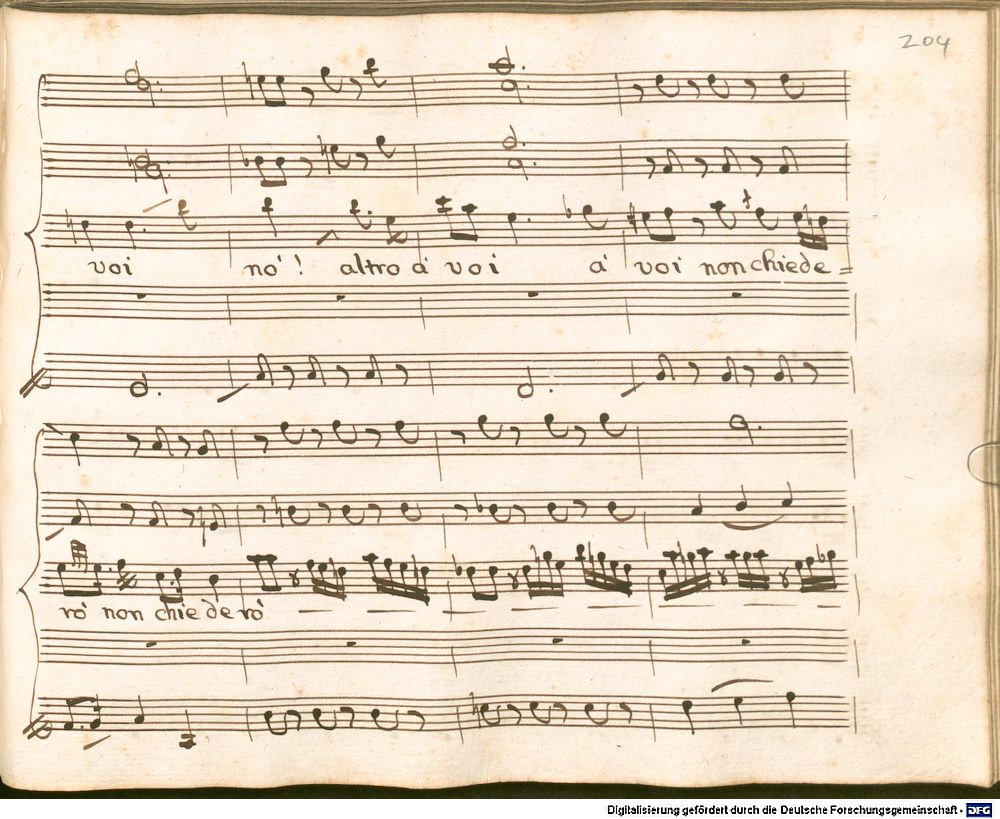 204
voi no'! altro a' voi a' voi non chiede =
ro' non chie de ro'
Digitalisierung gefördert durch die Deutsche Forschungsgemeinschaft - DFG